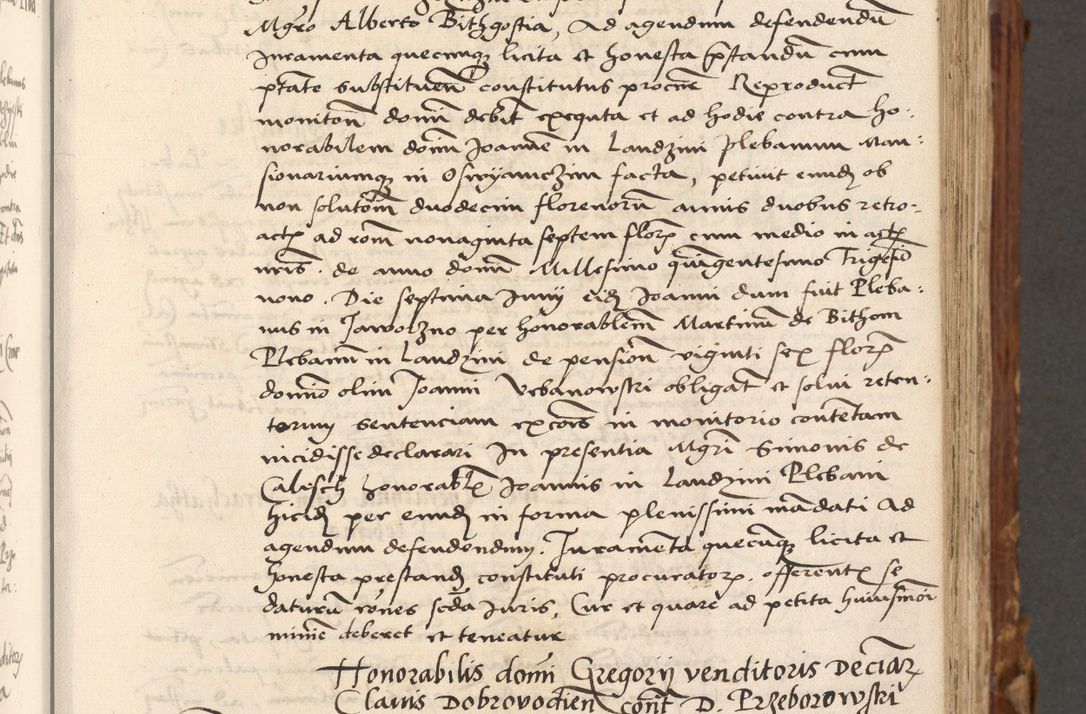 Mgro Alberto Bithgostia, Ad agendum defendendū
Juramenta quecumqȝ licita et honesta p̄standū cum
ptāte substituēn̄ constitutus procn̄e Reproduct̄
monitoriū domi debit̄ exequta et ad hodie contra ho:
norabilem dom̄ Joannē in Landzini Plebanum Man:
sionariumqȝ in Osvyanczim facta, petivit eundȝ ob
non solutōm duodecim florenorū annis duobus retro:
actȝ ad rōm nonaginta septem florȝ cum medio in actȝ
nr̄is. de anno domi Millesimo quīgentesimo Trigesiō
nono. Die septima Junij eidȝ Joanni dum fuit Pleba:
nus in Jaworzno per honorablem Martinū de Bithom
Plebanū in Landzini de pensiōn viginti sex florȝ
domino olim Joanni Vebanowski obligat̄ et solui reten:
torum sentenciam excōis in monitorio contētam
incidisse declarari In presentia Mgri Simonis de
Calesch honorabȝ Joannis in Landzini Plebani
hicidȝ per eundȝ in forma plenissimi mādati Ad
agendum defendendum. Juramēta quecūqȝ licita et
honesta prestandȝ constituti procuratorȝ. offerentȝ se
daturū rōnes scdā Juris, Cur et quare ad petita huiusmōi
minīe deberet et teneatur
Honorabilis domi Gregorij venditoris Decīarȝ
Clavis Dobrovodīen cont̄ D. Przeborowski